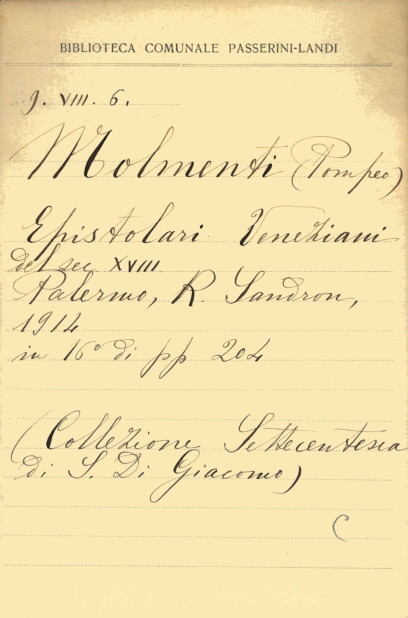 BIBLIOTECA COMUNALE PASSERINI-LANDI
9. VIII. 6.
Molmenti (Pompeo)
Epistolari Veneziani
del sec XVIII
Palermo, R. Sandron,
1914
in 16° di pp 204
(Collezione Settecentesca
di S. Di Giacomo)
C